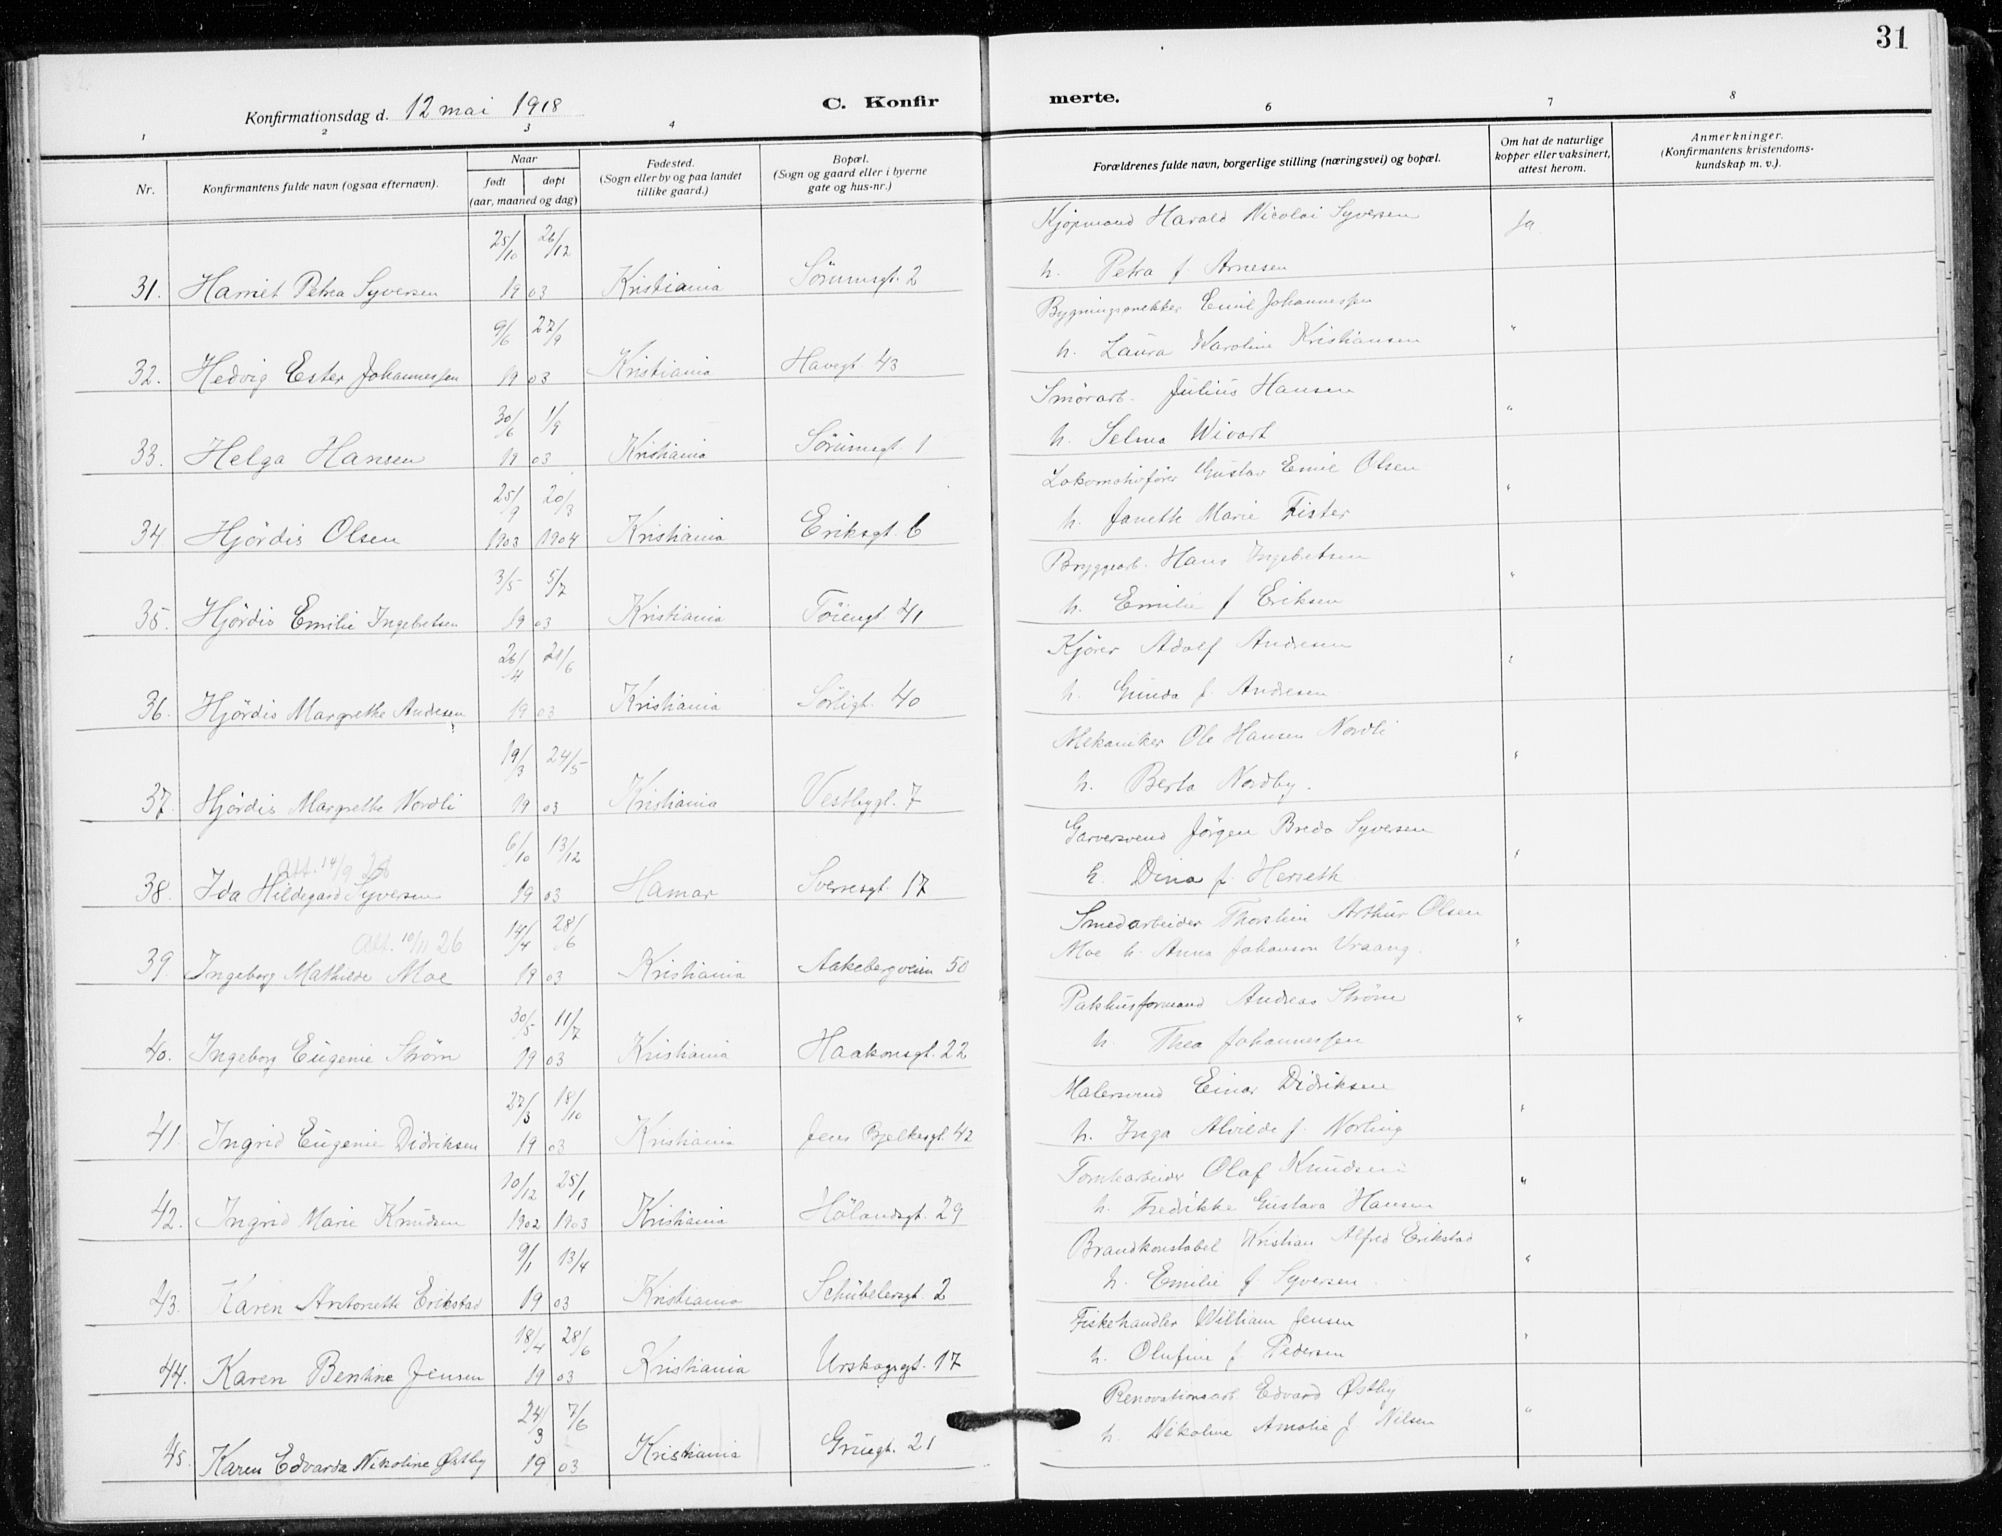 31
Konfirmationsdag d. 12 mai 1918
C. Konfirmerte.
1 2 3 4 6 7 8
Nr.
Konfirmantens fulde navn (ogsaa efternavn).
Naar
født døpt
(aar, maaned og dag)
Fødested.
(Sogn eller by og paa landet
tillike gaard.)
Bopæl.
(Sogn og gaard eller i byerne
gate og hus-nr.)
Forældrenes fulde navn, borgerlige stilling (næringsvei) og bopæl.
Om hat de naturlige
kopper eller vaksinert,
attest herom.
Anmerkninger.
(Konfirmantens kristendoms-
kundskap m. v.).
25/10 26/12 Kjøpmand Harald Nicolai Syversen Ja
31. Harriet Petra Syversen 19 03 Kristiania Sörumsgt. 2 h. Petra f. Arnesen
9/6 27/9 Bygningssnekker Emil Johannessen "
32. Hedvig Ester Johannessen 19 03 Kristiania Havegt 43 h. Laura Karoline Kristiansen
30/6 1/9 Smörarb. Julius Hansen "
33. Helga Hansen 19 03 Kristiania Sörumsgt. 1 h. Selma
25/9 20/3 Lokomotivförer Gustav Emil Olsen "
34 Hjördis Olsen 1903 1904 Kristiania Eriksgt. 6 h. Janeth Marie Fister
3/5 5/7 Bryggearb. Hans Ingebretsen "
35. Hjördis Emilie Ingebretsen 19 03 Kristiania Töiengt. 41 h. Emilie f Eriksen
26/4 21/6 Kjörer Adolf Andresen "
36. Hjördis Margrethe Andresen 19 03 Kristiania Sörligt. 40 h. Gunda f. Andresen
19/3 24/5 Mekaniker Ole Hansen Nordli "
37. Hjördis Margrethe Nordli 19 03 Kristiania Vestbygt. 7 h. Berta Nordby.
6/10 13/12 Garversvend Jörgen Breda Syversen "
Att. 14/9 28
38. Ida Hildegard Syversen 19 03 Hamar Sverresgt. 17 h. Dina f. Herseth
14/4 28/6 Smedarbeider Thorstein Arthur Olsen
Att. 10/11 26
39. Ingeborg Mathilde Moe 19 03 Kristiania Aakebergveien 50 Moe h. Anna Johanson Vraang. "
30/5 11/7 Pakhusformand Andreas Strøm "
40. Ingeborg Eugenie Strøm 19 03 Kristiania Haakonsgt. 22 h. Thea Johannessen
27/3 18/10 Malersvend Einar Didriksen "
41. Ingrid Eugenie Didriksen 19 03 Kristiania Jens Bjelkesgt. 42 h. Inga Alvilde f. Norling
10/12 25/1 Tomtearbeider Olaf Knudsen "
42. Ingrid Marie Knudsen 1902 1903 Kristiania Hölandsgt. 29 h. Fredrikke Gustava Hansen
9/1 13/4 Brandkonstabel Kristian Alfred Erikstad "
43. Karen Antonette Erikstad 19 03 Kristiania Schübelersgt. 2 h. Emilie f Syversen
18/4 28/6 Fiskehandler William Jensen "
44. Karen Bentine Jensen 19 03 Kristiania Urskogsgt. 17 h. Olufine f Pedersen
24/3 7/6 Renovationsarb Edvard Østby "
45. Karen Edvarda Nikoline Østby 19 03 Kristiania Grüegt. 21 h. Nikoline Amalie f. Nilsen